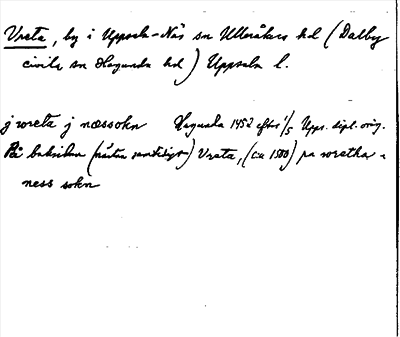 Vreta, by i Uppsala-Näs sn Ulleråkers hd (Dalby
civila sn Hagunda hd) Uppsala l.
j wreta j næssokn Hagunda 1452 efter 1/5 Upps. dipl. orig.
På baksidan (nästan samtidigt) Vrata, (ca 1500) pa wretha i
ness sokn